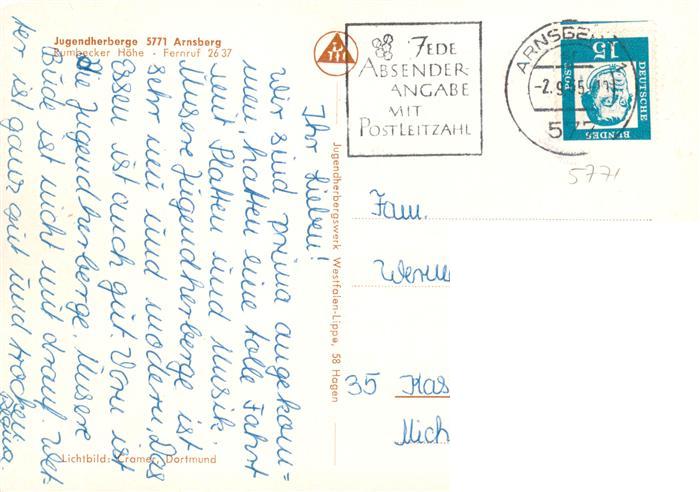 Jugendherberge 5771 Arnsberg
Rumbecker Höhe - Fernruf 26 37
JEDE
ABSENDER-
ANGABE
MIT
POSTLEITZAHL
ARNSBERG
-2.9.65
577
15
DEUTSCHE
BUNDES
POST
5771
Ihr Lieben!
Wir sind prima angekom=
men, hatten eine tolle Fahrt
mit Platten und Musik.
Unsere Jugendherberge ist
sehr neu und modern. Das
Essen ist auch gut. Vorn ist
die Jugendherberge. Unsere
Bude ist nicht mit drauf. Wet-
ter ist ganz gut und trocken.
Jugendherbergswerk Westfalen-Lippe, 58 Hagen
Fam.
Werne
35 Kas
Mich
Lichtbild: Cramer, Dortmund